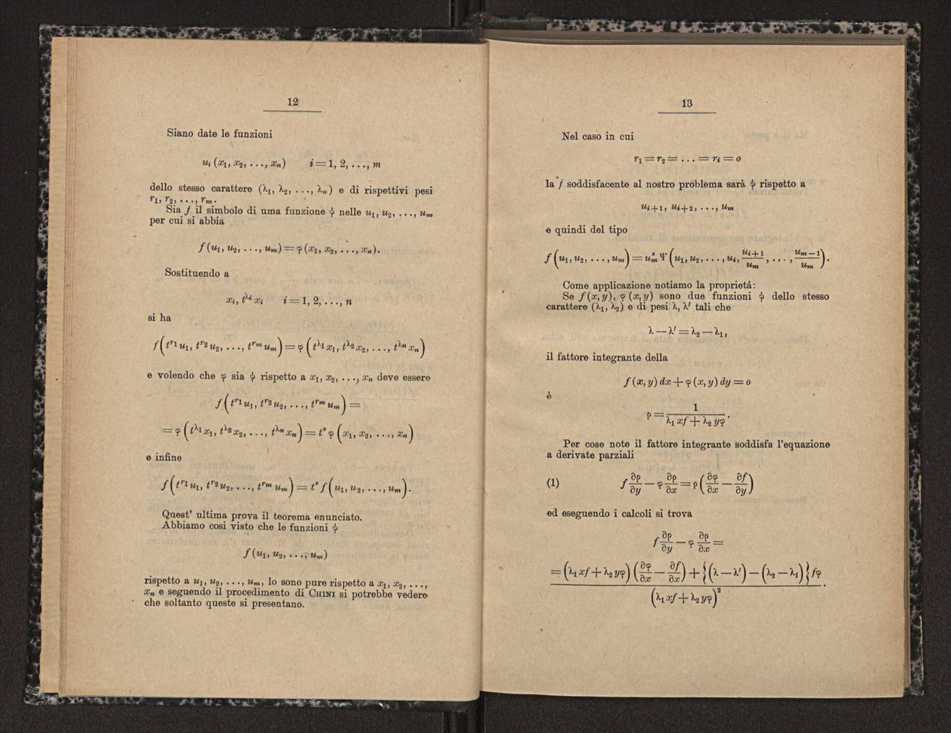 12
Siano date le funzioni
u_i (x_1, x_2, . . ., x_n) i = 1, 2, . . ., m
dello stesso carattere (λ_1, λ_2, . . ., λ_n) e di rispettivi pesi
r_1, r_2, . . ., r_m.
Sia f il simbolo di una funzione ψ nelle u_1, u_2, . . ., u_m
per cui si abbia
f (u_1, u_2, . . ., u_m) = φ (x_1, x_2, . . ., x_n).
Sostituendo a
x_i, t^{λ_i} x_i i = 1, 2, . . ., n
si ha
f (t^{r_1} u_1, t^{r_2} u_2, . . ., t^{r_m} u_m) = φ (t^{λ_1} x_1, t^{λ_2} x_2, . . ., t^{λ_n} x_n)
e volendo che φ sia ψ rispetto a x_1, x_2, . . ., x_n deve essere
f (t^{r_1} u_1, t^{r_2} u_2, . . ., t^{r_m} u_m) =
= φ (t^{λ_1} x_1, t^{λ_2} x_2, . . ., t^{λ_n} x_n) = t^s φ (x_1, x_2, . . ., x_n)
e infine
f (t^{r_1} u_1, t^{r_2} u_2, . . ., t^{r_m} u_m) = t^s f (u_1, u_2, . . ., u_m).
Quest' ultima prova il teorema enunciato.
Abbiamo così visto che le funzioni ψ
f (u_1, u_2, . . ., u_m)
rispetto a u_1, u_2, . . ., u_m, lo sono pure rispetto a x_1, x_2, . . .,
x_n e seguendo il procedimento di CHINI si potrebbe vedere
che soltanto queste si presentano.
13
Nel caso in cui
r_1 = r_2 = . . . = r_i = o
la f soddisfacente al nostro problema sarà ψ rispetto a
u_{i+1}, u_{i+2}, . . ., u_m
e quindi del tipo
f (u_1, u_2, . . ., u_m) = u_m^s Ψ (u_1, u_2, . . ., u_i, u_{i+1}/u_m, . . ., u_{m−1}/u_m).
Come applicazione notiamo la proprietá:
Se f (x, y), φ (x, y) sono due funzioni ψ dello stesso
carattere (λ_1, λ_2) e di pesi λ, λ' tali che
λ — λ' = λ_2 — λ_1,
il fattore integrante della
f (x, y) dx + φ (x, y) dy = o
è
ρ = 1/(λ_1 xf + λ_2 yφ).
Per cose note il fattore integrante soddisfa l'equazione
a derivate parziali
(1) f ∂ρ/∂y — φ ∂ρ/∂x = ρ (∂φ/∂x — ∂f/∂y)
ed eseguendo i calcoli si trova
f ∂ρ/∂y — φ ∂ρ/∂x =
= [(λ_1 xf + λ_2 yφ) (∂φ/∂x — ∂f/∂x) + {(λ — λ') — (λ_2 — λ_1)} fφ] / (λ_1 xf + λ_2 yφ)^2.